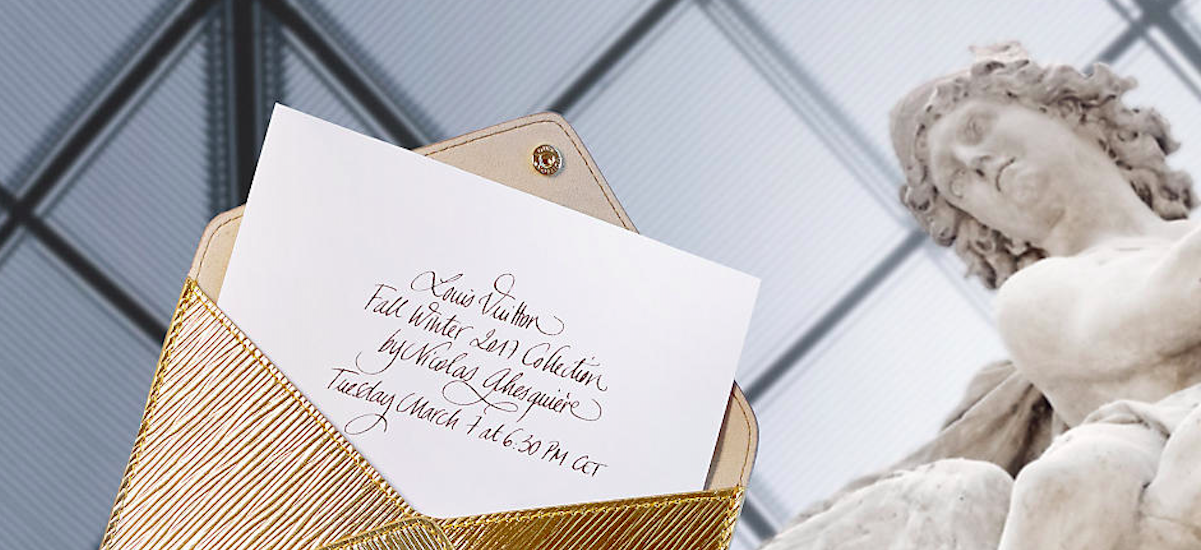 Louis Vuitton
Fall Winter 2017 Collection
by Nicolas Ghesquière
Tuesday March 7 at 6:30 PM CET